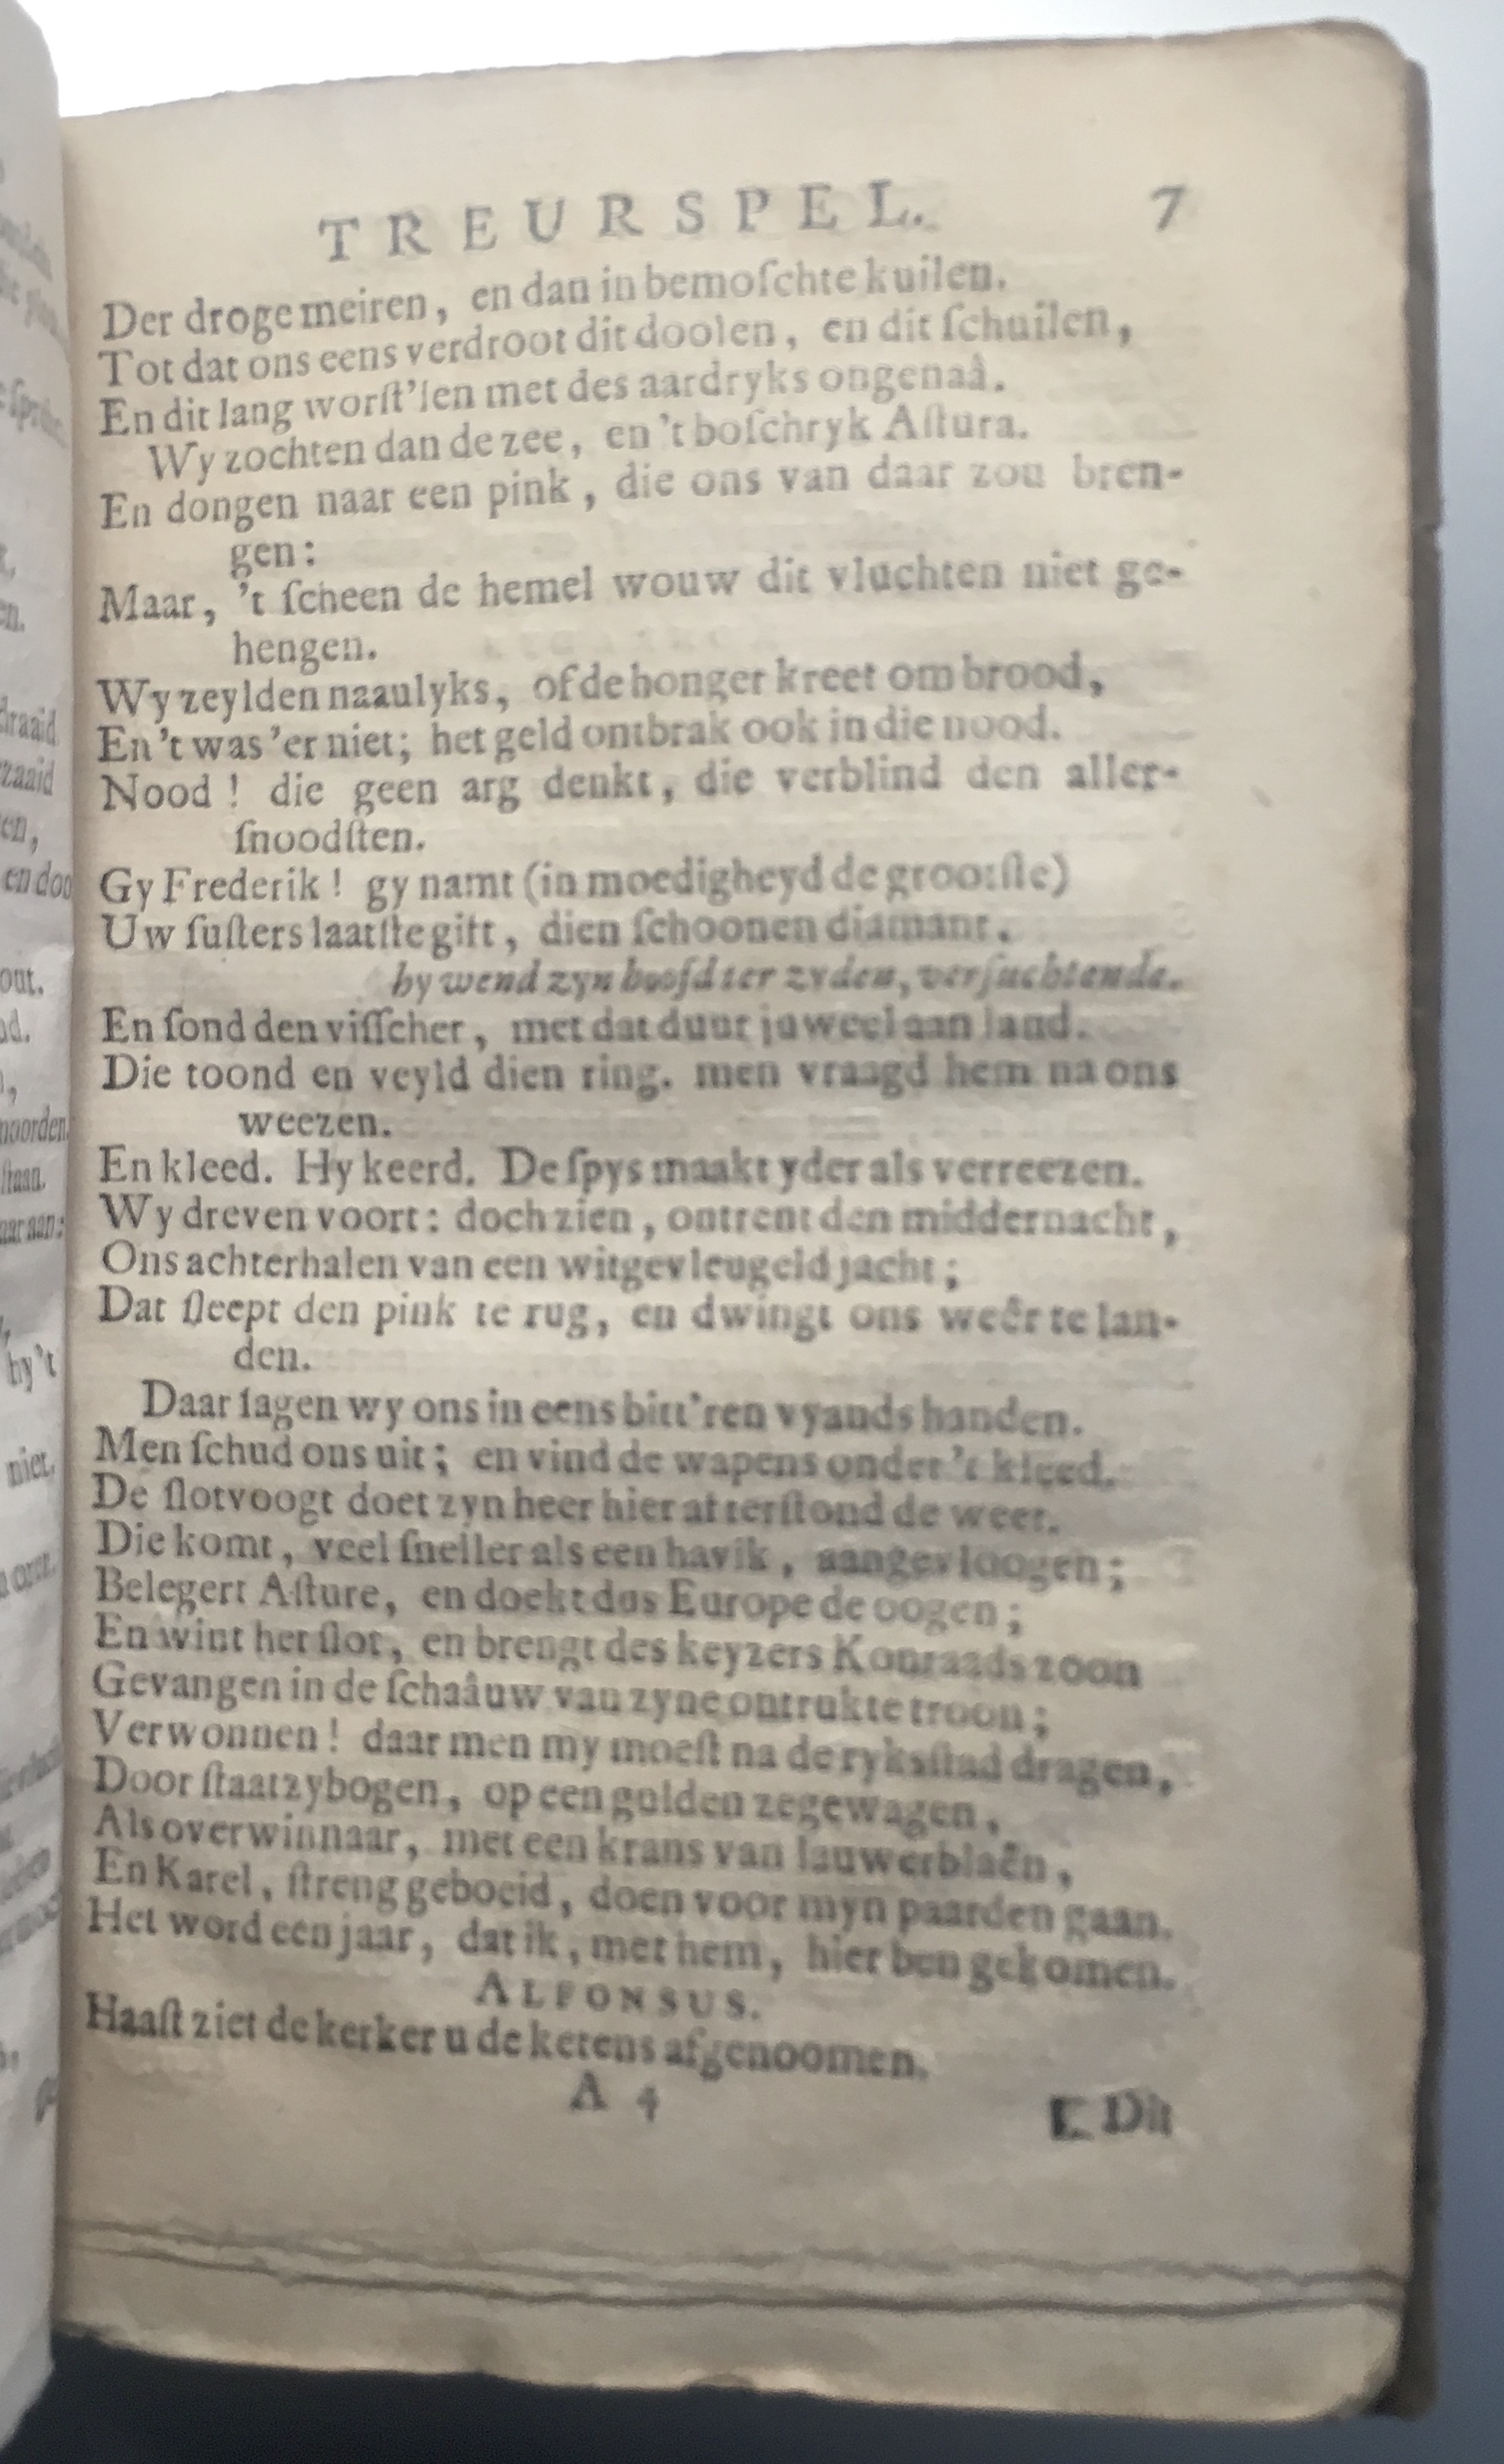 TREURSPEL. 7
Der droge meiren, en dan in bemoſchte kuilen.
Tot dat ons eens verdroot dit doolen, en dit ſchuilen,
En dit lang worſt'len met des aardryks ongenaâ.
Wy zochten dan de zee, en 't boſchryk Aſtura.
En dongen naar een pink, die ons van daar zou bren-
gen:
Maar, 't ſcheen de hemel wouw dit vluchten niet ge-
hengen.
Wy zeylden naaulyks, of de honger kreet om brood,
En 't was 'er niet; het geld ontbrak ook in die nood.
Nood! die geen arg denkt, die verblind den aller-
ſnoodſten.
Gy Frederik! gy namt (in moedigheyd de grootſte)
Uw ſuſters laatſte gift, dien ſchoonen diamant.
hy wend zyn hoofd ter zyden, verſuchtende.
En ſond den viſſcher, met dat duur juweel aan land.
Die toond en veyld dien ring. men vraagd hem na ons
weezen.
En kleed. Hy keerd. De ſpys maakt yder als verreezen.
Wy dreven voort: doch zien, ontrent den middernacht,
Ons achterhalen van een witgevleugeld jacht;
Dat ſleept den pink te rug, en dwingt ons weêr te lan-
den.
Daar ſagen wy ons in eens bitt'ren vyands handen.
Men ſchud ons uit; en vind de wapens onder 't kleed.
De ſlotvoogt doet zyn heer hier af terſtond de weet.
Die komt, veel ſneller als een havik, aangevloogen;
Belegert Aſture, en doekt dus Europe de oogen;
En wint het ſlot, en brengt des keyzers Konraads zoon
Gevangen in de ſchaâuw van zyne ontrukte troon;
Verwonnen! daar men my moeſt na de ryksſtad dragen,
Door ſtaatzybogen, op een gulden zegewagen,
Als overwinnaar, met een krans van lauwerblaên,
En Karel, ſtreng geboeid, doen voor myn paarden gaan.
Het word een jaar, dat ik, met hem, hier ben gekomen.
ALFONSUS.
Haaſt ziet de kerker u de ketens afgenoomen.
A 4 Dit